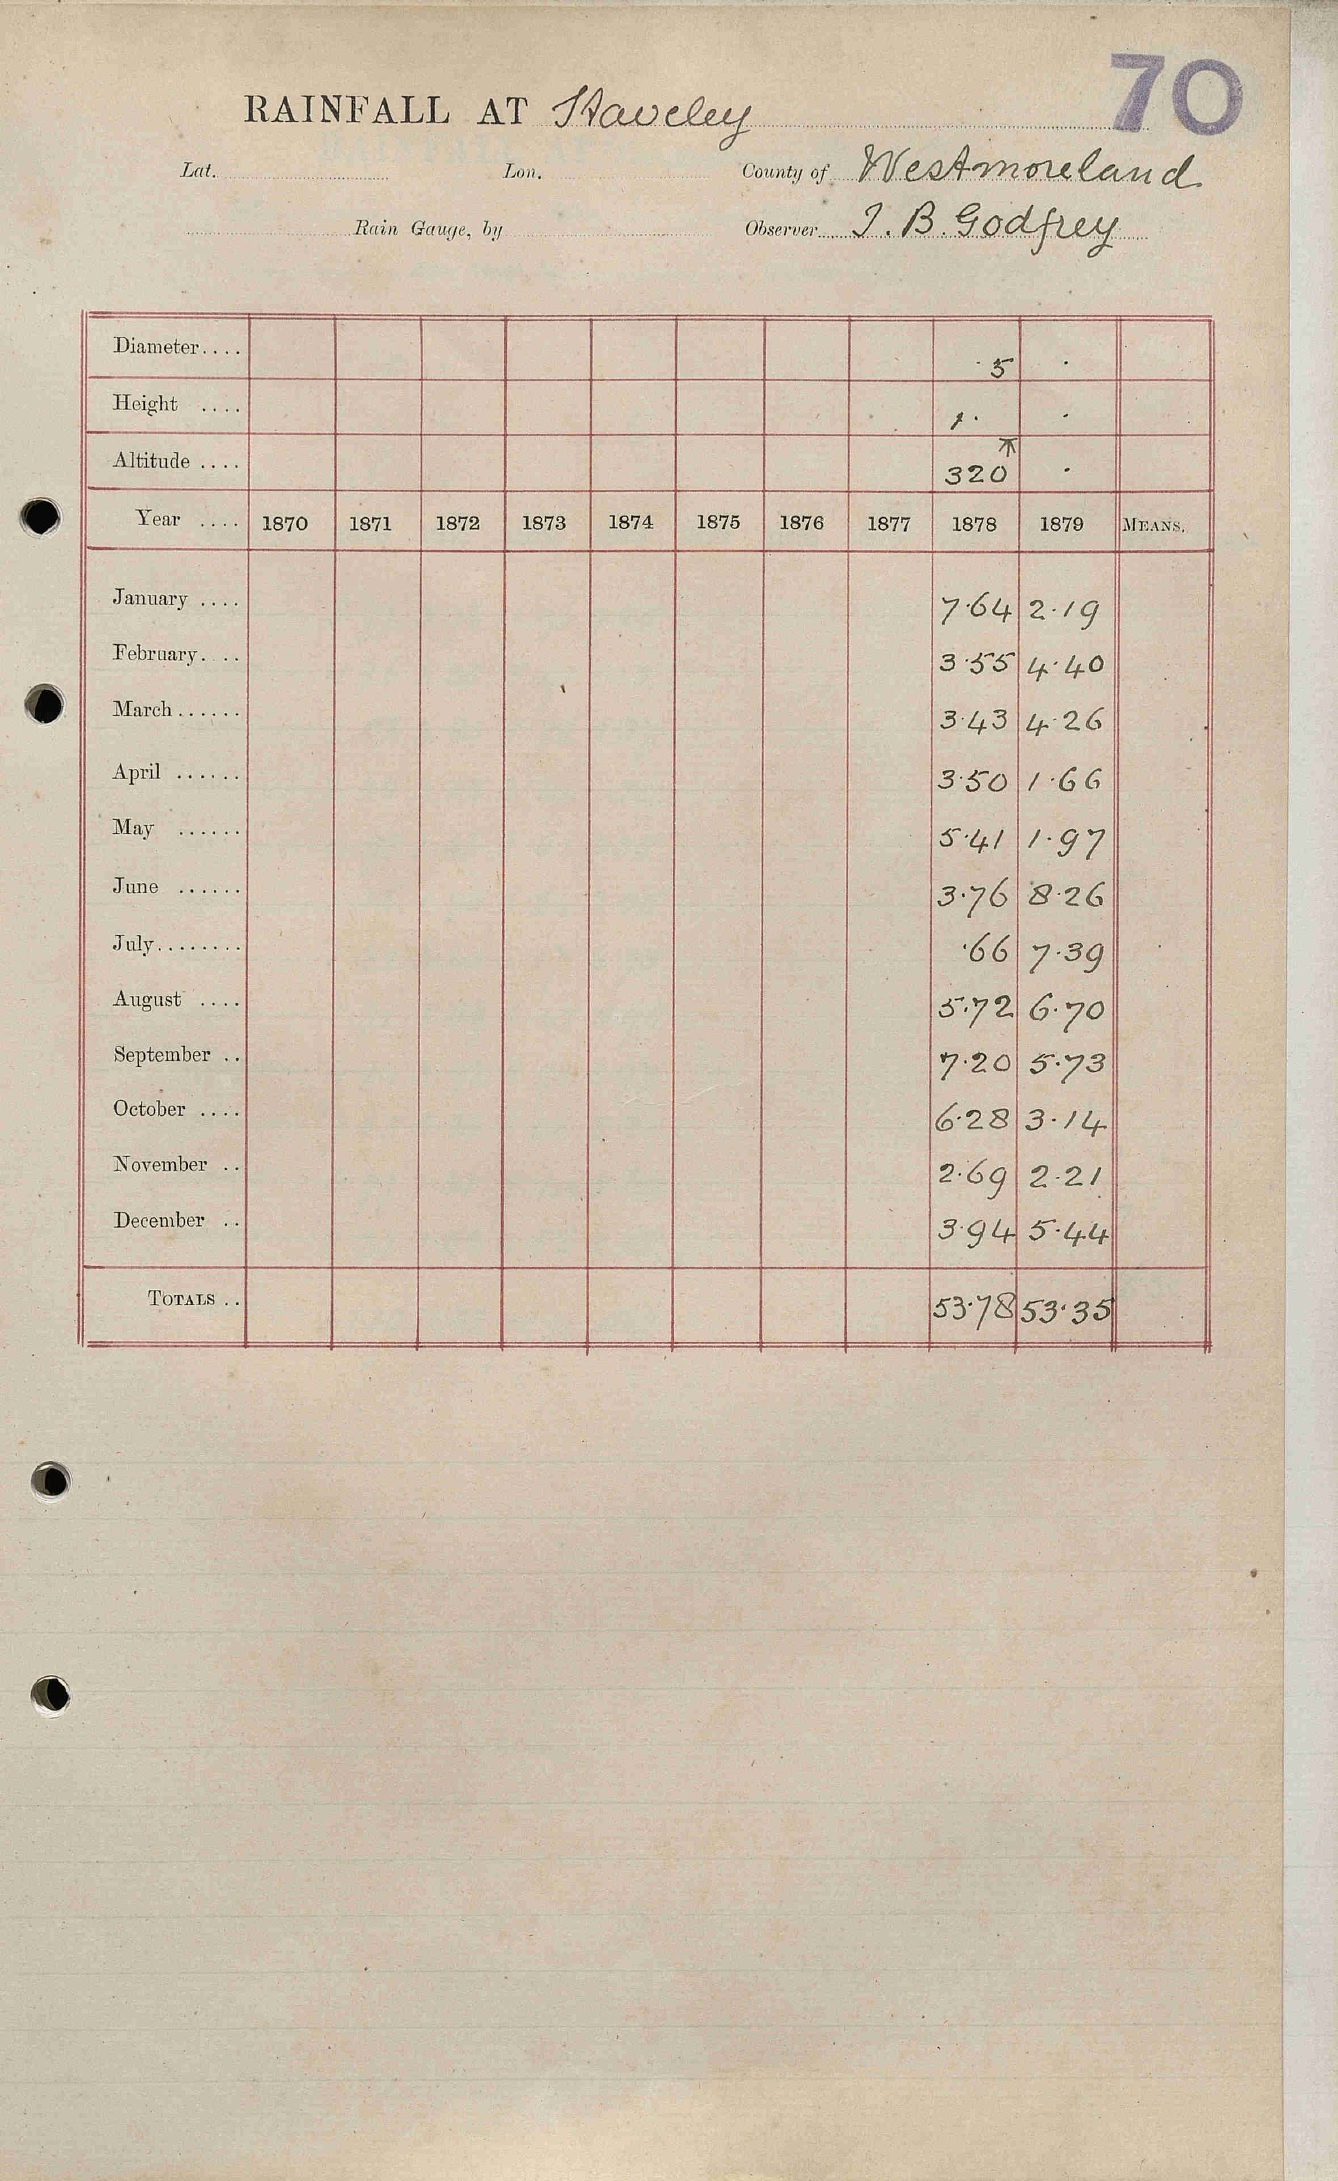 70
RAINFALL AT Staveley
Lat. Lon. County of Westmoreland
Rain Gauge, by Observer J. B. Godfrey
Diameter.... 5 .
Height .... 1. .
Altitude .... 320 .
Year .... 1870 1871 1872 1873 1874 1875 1876 1877 1878 1879 MEANS.
January .... 7.64 2.19
February.... 3.55 4.40
March...... 3.43 4.26
April ...... 3.50 1.66
May ...... 5.41 1.97
June ...... 3.76 8.26
July........ .66 7.39
August .... 5.72 6.70
September .. 7.20 5.73
October .... 6.28 3.14
November .. 2.69 2.21
December .. 3.94 5.44
TOTALS .. 53.78 53.35